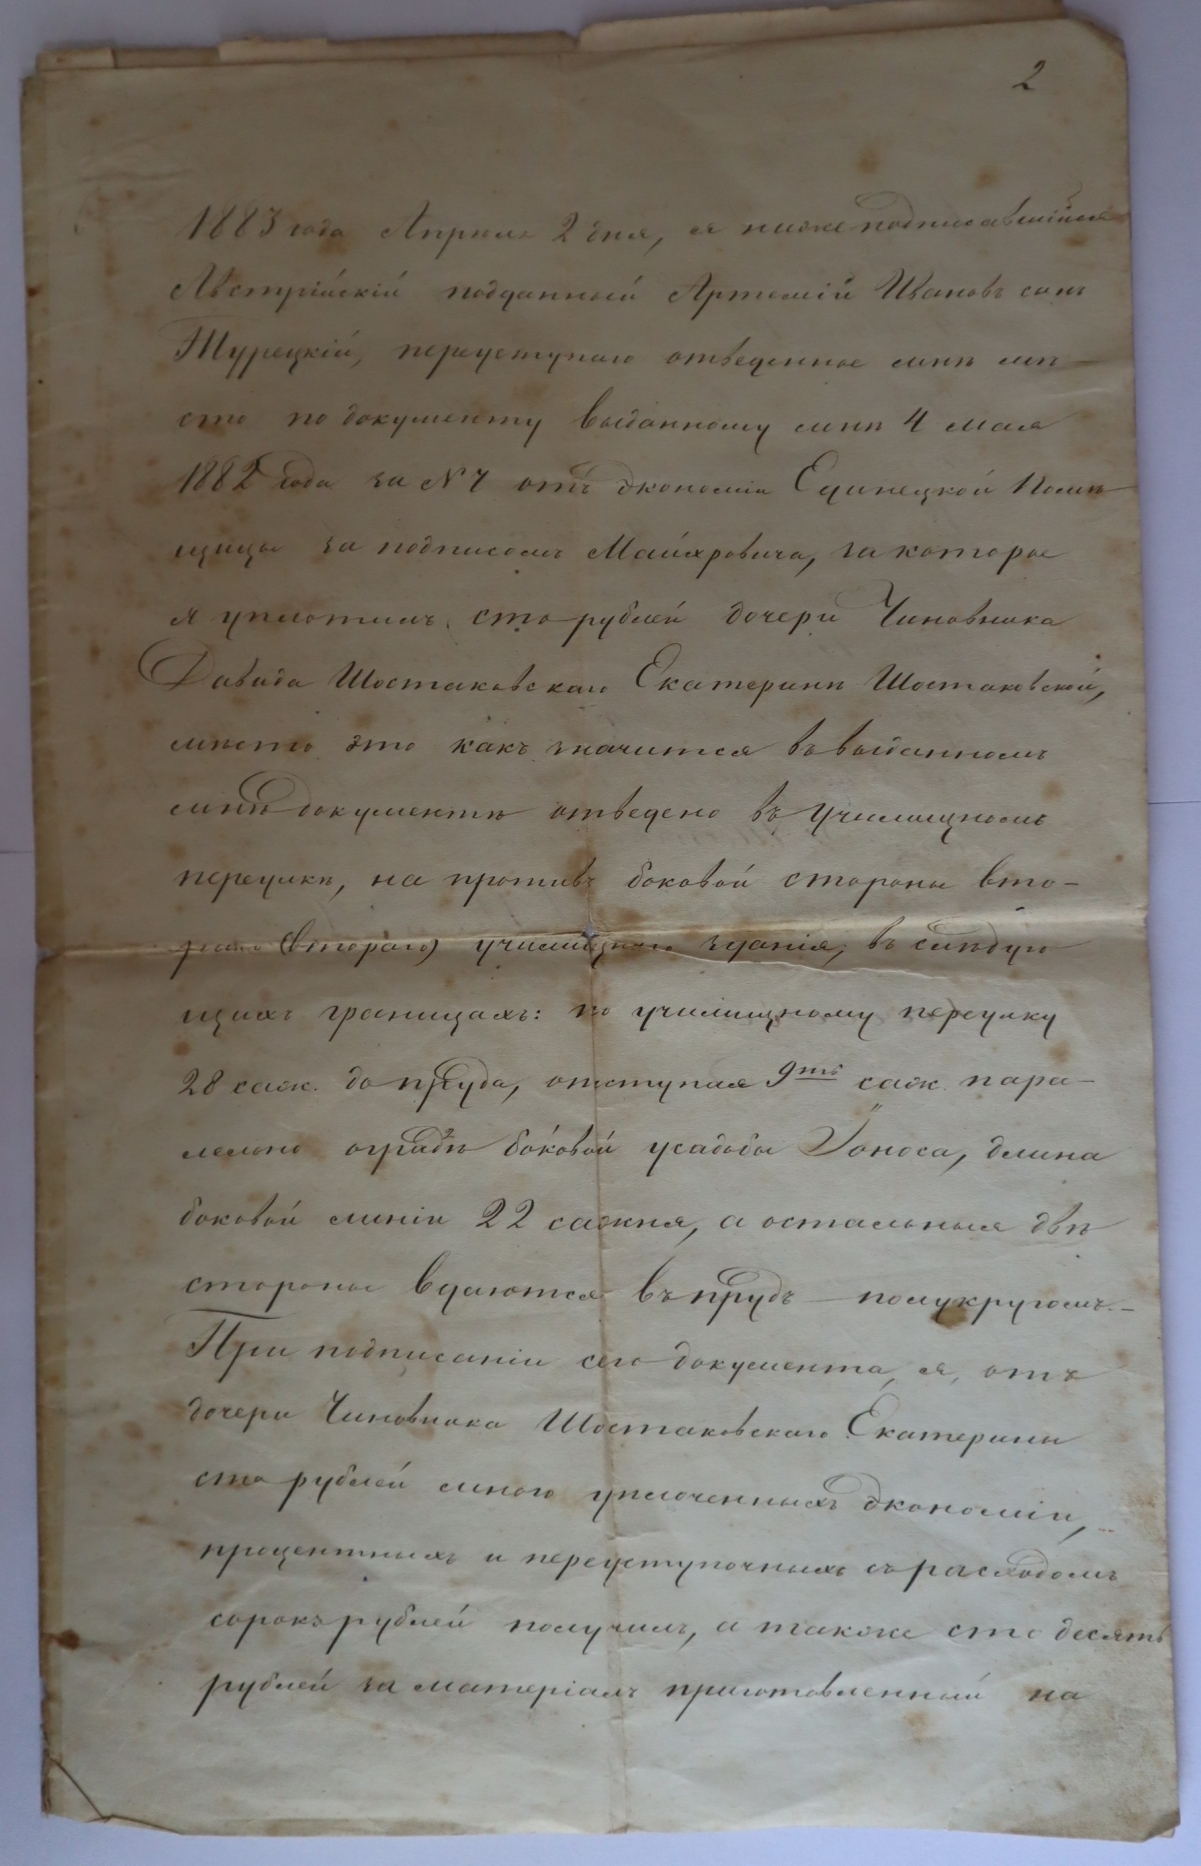 2
1883 года Апреля 2 дня, я нижеподписавшійся
Австрійскій подданный Артемій Ивановъ сынъ
Турецкій, переуступаю отведенное мнѣ мѣ-
сто по документу выданному мнѣ 4 мая
1882 года за № 7 отъ Экономіи Единецкой Помѣ-
щицы за подписомъ Майяровича, за которое
я уплотилъ сто рублей дочери Чиновника
Давида Шостаковскаго Екатеринѣ Шостаковской,
мѣсто это какъ значится въ выданномъ
мнѣ документѣ отведено въ Училищномъ
переулкѣ, на противъ боковой стороны вто-
раго (втораго) училищнаго зданія, въ слѣдую
щихъ границахъ: по училищному переулку
28 саж. до пруда, отступая 9ть саж. пара-
лельно оградѣ боковой усадьбы Іоноса, длина
боковой линіи 22 сажня, а остальныя двѣ
стороны вдаются въ прудъ полукругомъ.—
При подписаніи сего документа, я, отъ
дочери Чиновника Шостаковскаго Екатерины
сто рублей мною уплоченныхъ Экономіи,
процентныхъ и переуступочныхъ съ расходомъ
сорокъ рублей получилъ, а также сто десять
рублей за матеріалъ приготовленный на